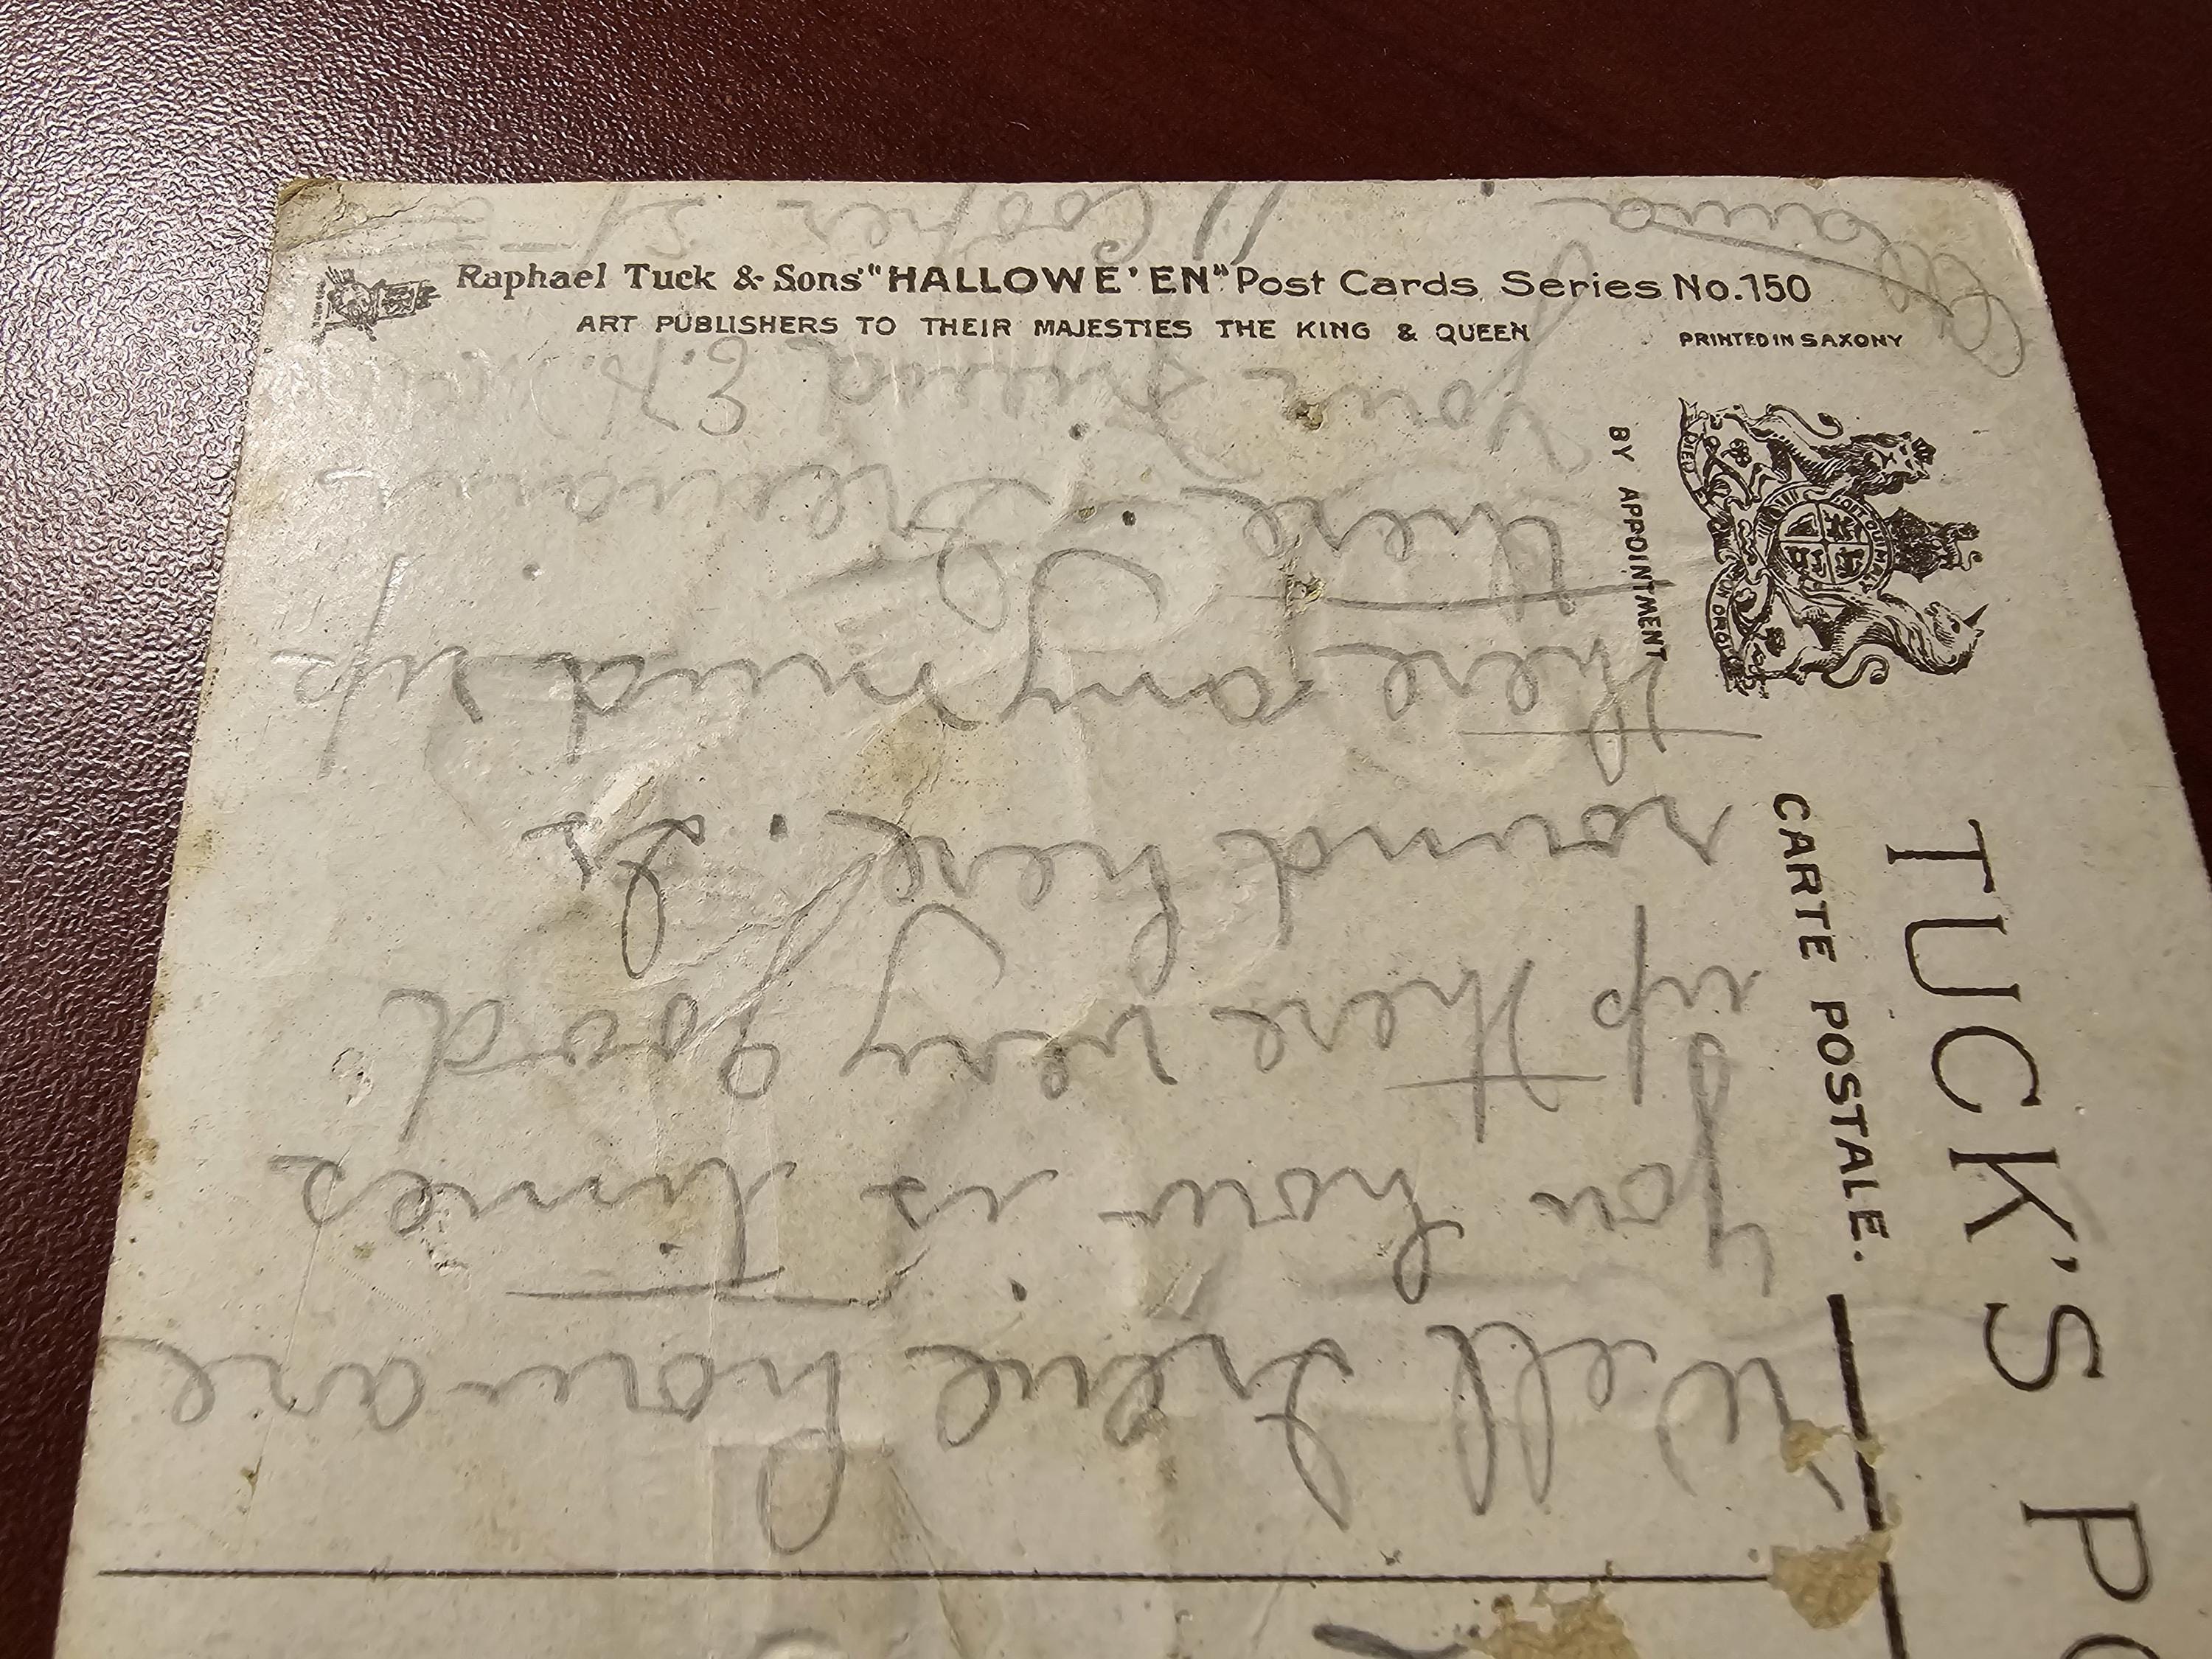 Raphael Tuck & Sons' "HALLOWE'EN" Post Cards. Series No. 150
ART PUBLISHERS TO THEIR MAJESTIES THE KING & QUEEN
PRINTED IN SAXONY
BY APPOINTMENT
TUCK'S
CARTE POSTALE.
Well Irene how are
you how is times
up there very good
round here. Is
there any mud up
there. I remain
your friend E. H.
11 Cooper St